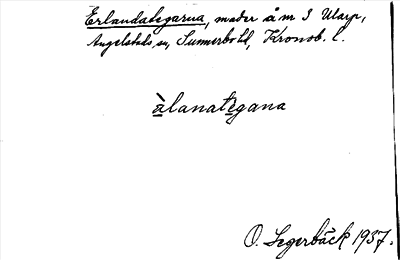 Erlandategarna, mader å m S Utarp,
Angelstads sn, Sunnerbo hd, Kronob. l.
àlanatègana
O. Segerbäck 1937.